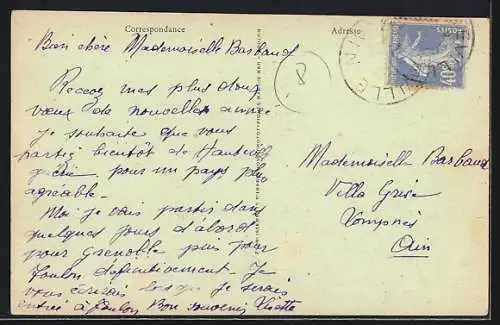 Correspondance
Adresse
Bien chère Mademoiselle Barbaud
Recevez mes plus doux
vœux de nouvelle année
je souhaite que vous
partiez bientôt de Hauteville
guérie pour un pays plus
agréable.
Moi je vais partir dans
quelques jours d'abord
pour Grenoble puis pour
Toulon définitivement. Je
vous écrirai lorsque je serais
rentrée à Toulon Bon souvenir
8
POSTES
40
Mademoiselle Barbaud
Villa Grise
Lompnes
Ain